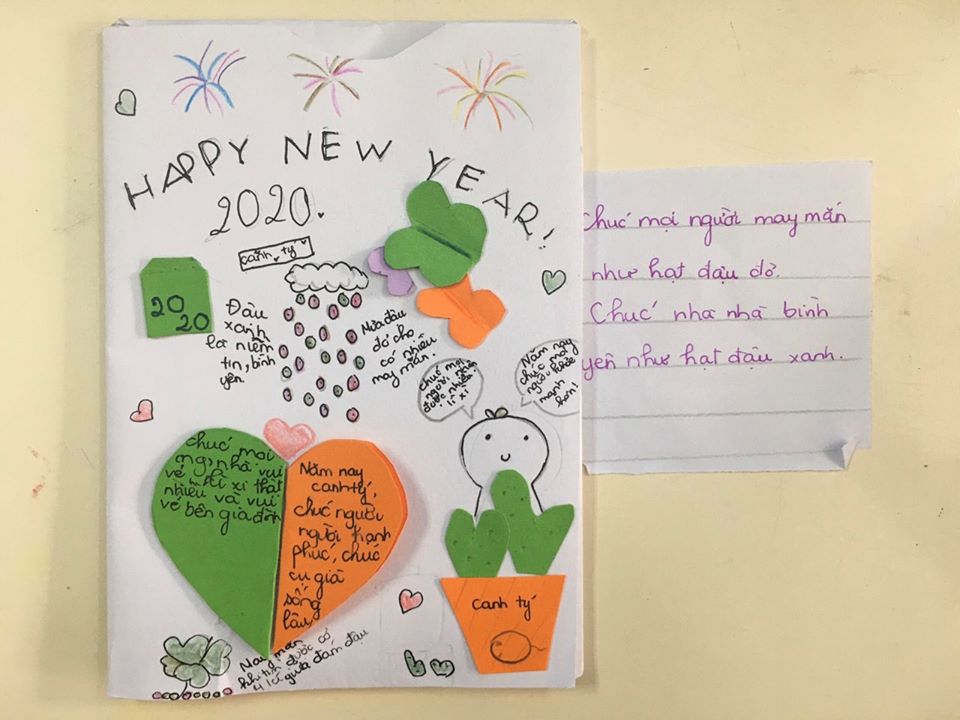 HAPPY NEW YEAR!
2020.
canh tý
20
20
Đàu
xanh
là niềm
tin, bình
yên
Nửa đầu
đỏ cho
có nhiều
may mắn.
chúc mọi
người nhận
được nhiều
lì xì
Năm nay
chúc mọi
người khỏe
mạnh
hơn!
chúc mọi
ng nhà vui
vẻ lì xì thật
nhiều và vui
vẻ bên gia đình
Năm nay
canh tý,
chúc người
người hạnh
phúc, chúc
cụ già
sống
lâu,
May mắn
khi tìm được cỏ
4 lá giữa đám đậu
canh tý
chúc mọi người may mắn
như hạt đậu đỏ.
Chúc nhà nhà bình
yên như hạt đậu xanh.